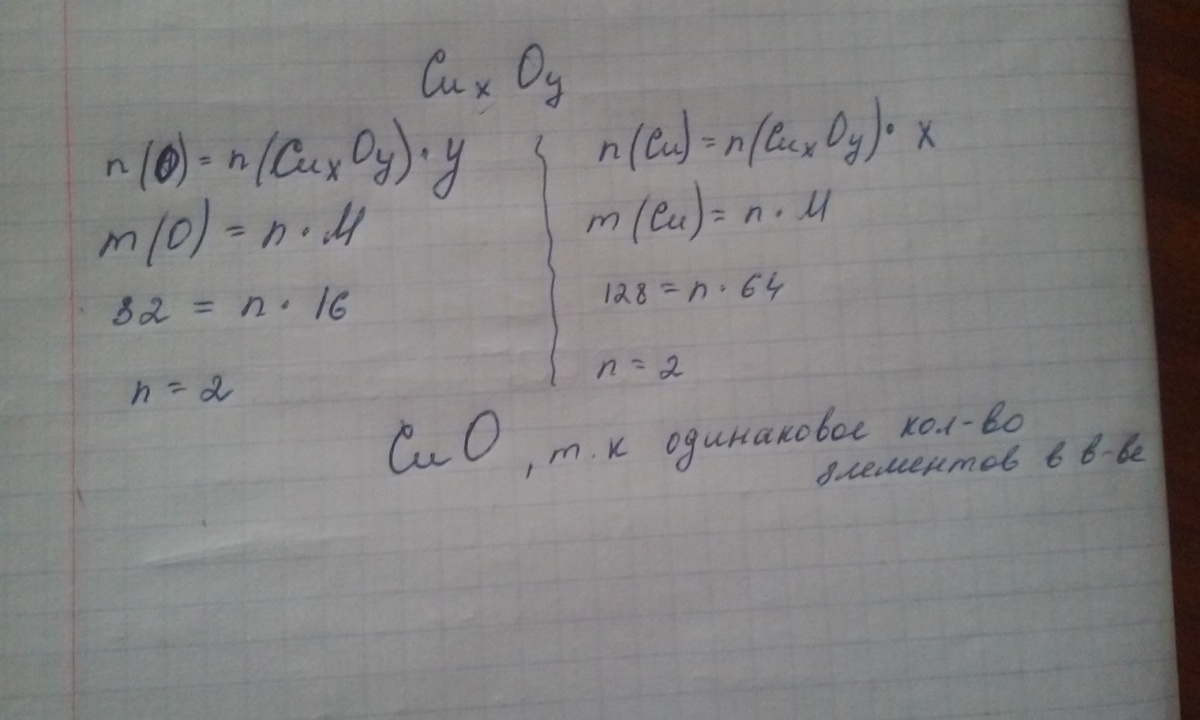 CuxOy
n(O) = n(CuxOy)·y
m(O) = n·M
32 = n·16
n = 2
n(Cu) = n(CuxOy)·x
m(Cu) = n·M
128 = n·64
n = 2
CuO, т.к одинаковое кол-во
элементов в в-ве